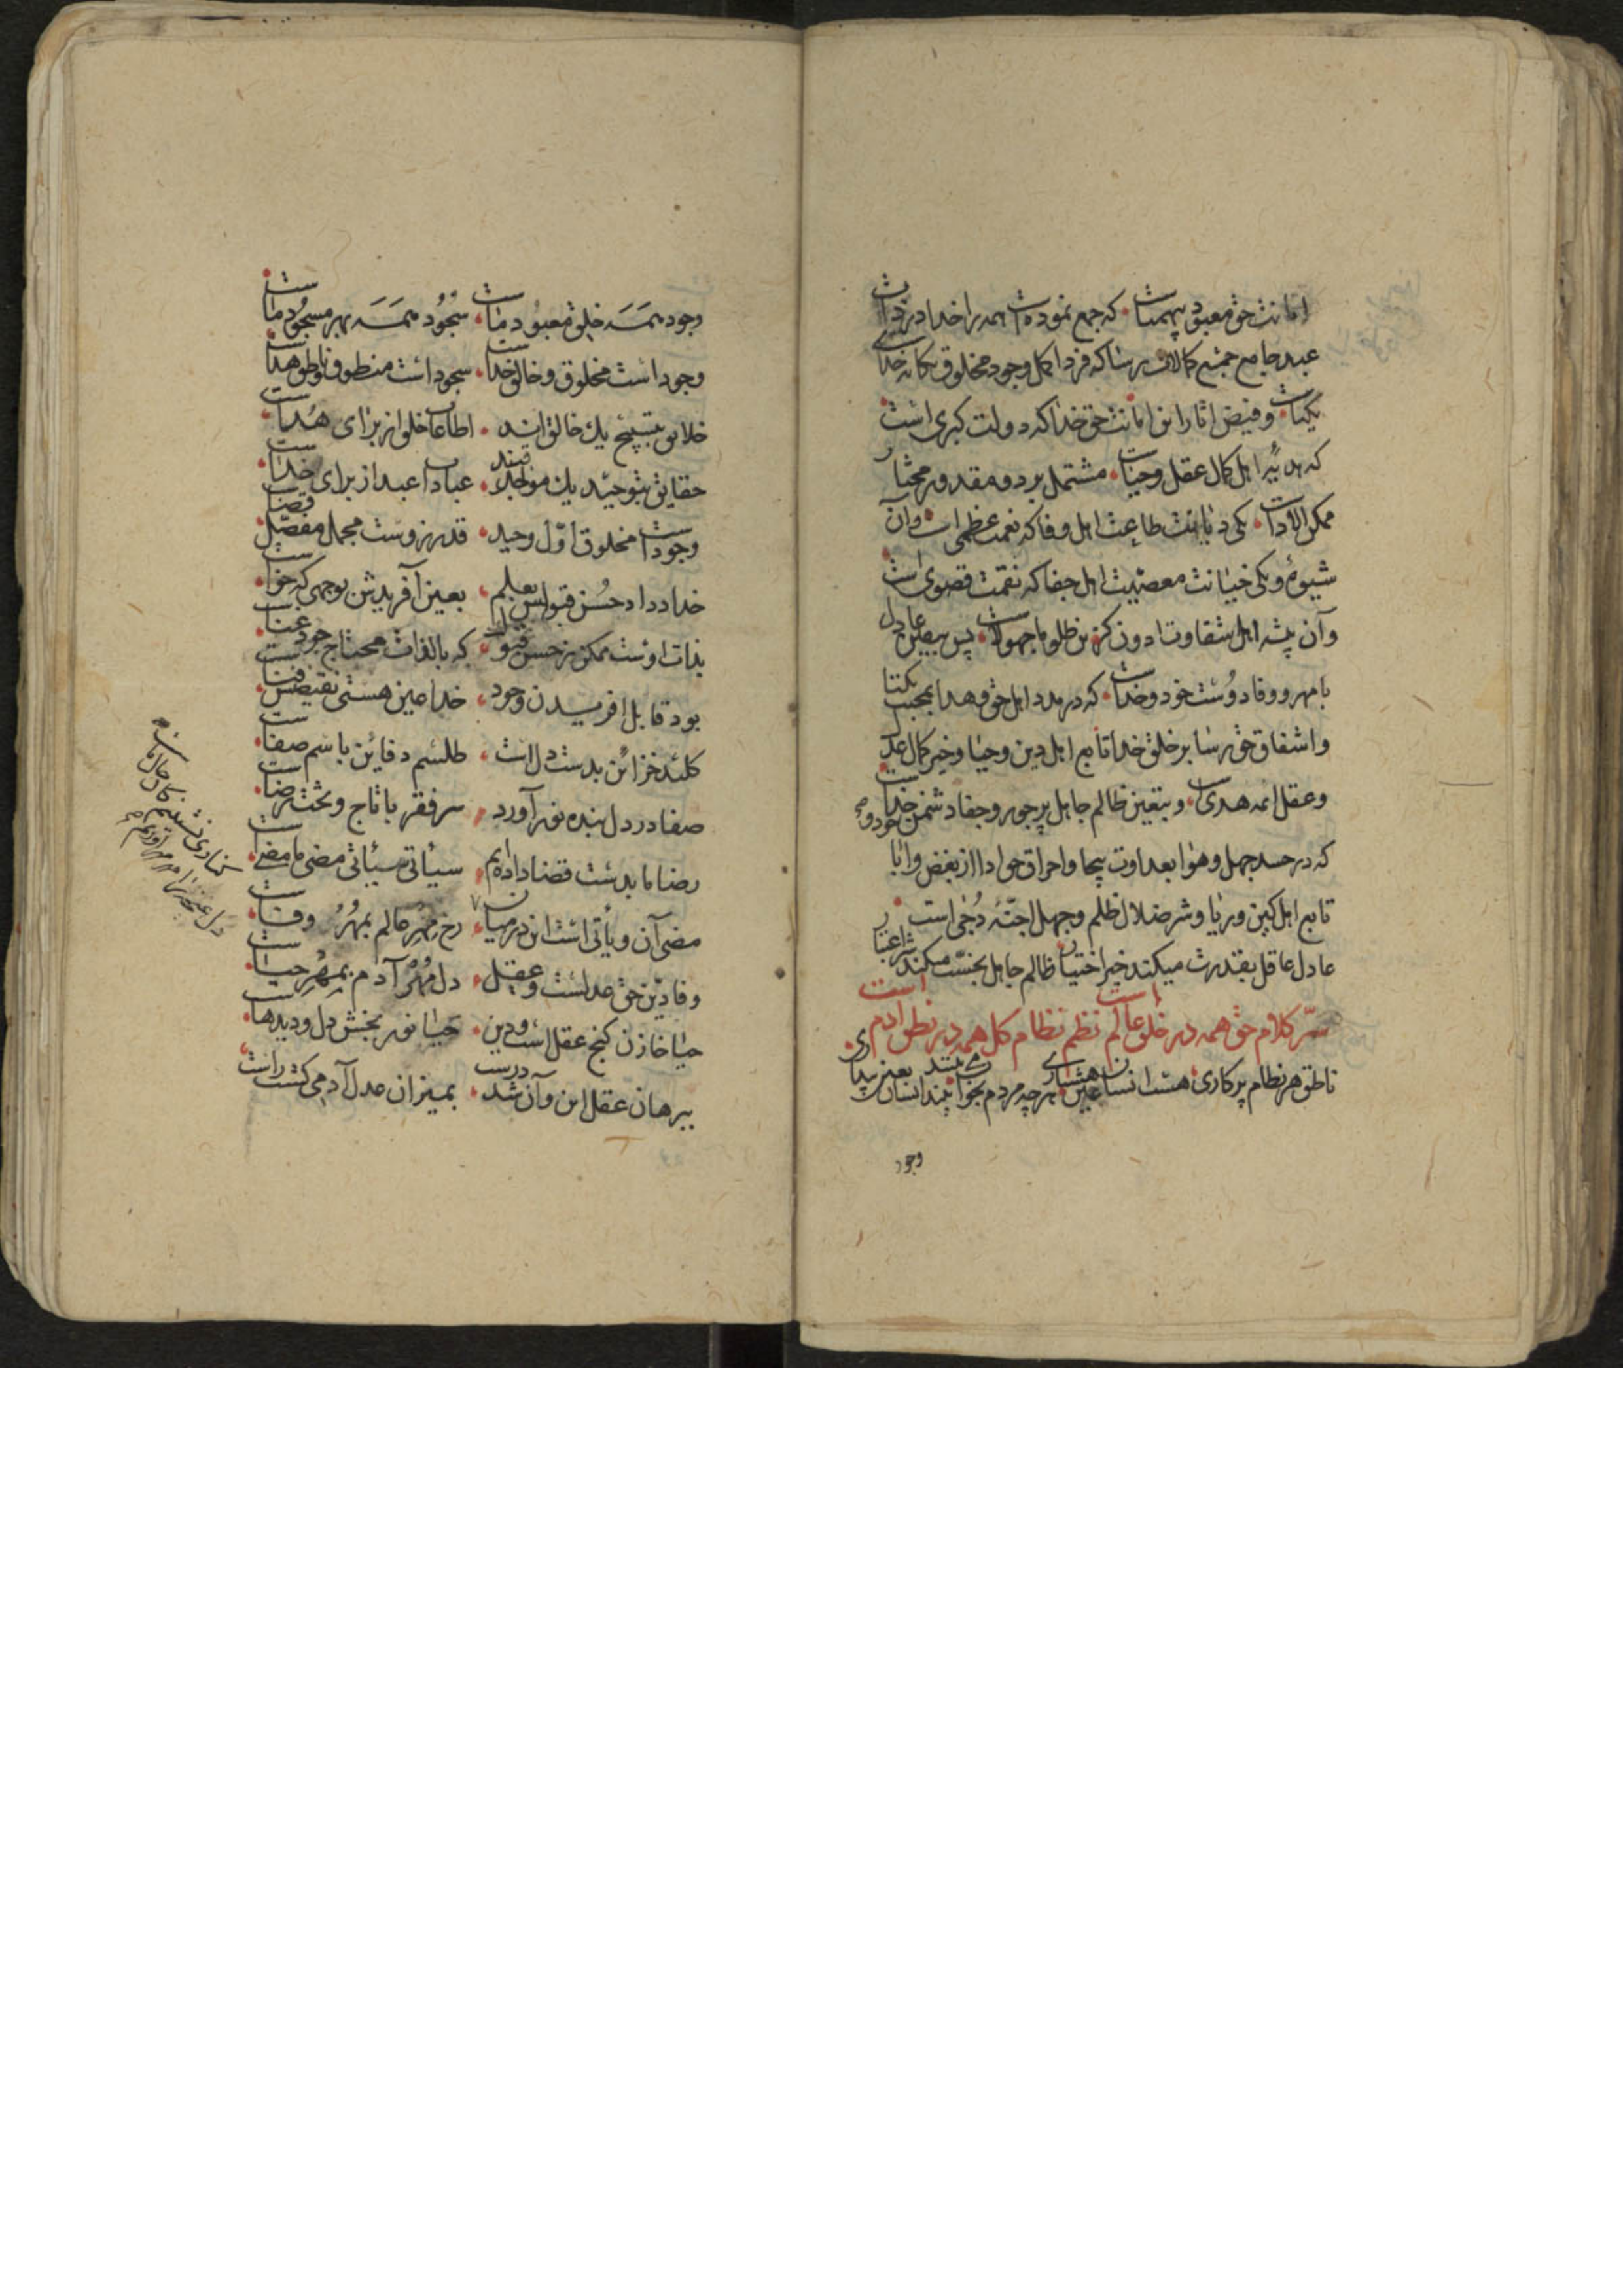 امانت حق معبود بیهمتاست که جمع نموده است همه را خدا در ذات
عبد جامع جمیع کمالات رسا که فرد اکمل وجود مخلوق یگانه خدای
یکتاست و فیض اثار این امانت حق خدا که دولت کبری است
که هدیهٔ اهل کمال عقل و حیاست مشتمل بر دو مقدور مختار
ممکن الاداست یکی دیانت طاعت اهل وفا که نعمت عظمی است و آن
شیوهٔ و یکی خیانت معصیت اهل جفا که نقمت قصوی است
و آن پیشه اهل شقاوت ادون کمترین ظلوما جهولاست پس بیقین عادل
با مهر و وفا دوست خود و خداست که در مدد اهل حق و هدا بمحبت یکتا
و اشفاق حق رسا بر خلق خدا تابع اهل دین و حیا و خیر کمال عدل
و عقل ائمه هدی است و بیقین ظالم جاهل پر جور و جفا دشمن خود و خداست
که در حسد جهل و هوا بعداوت بیجا و احراق حق ادا از بغض و ابا
تابع اهل کین و ریا و شر ضلال ظلم و جهل اجنهٔ دُجی است
عادل عاقل بقدرت میکند خیر اختیار ظالم جاهل بخست میکند شر اعتبار
سرّ کلام حق همه در خلق عالم است نظم نظام کل همه در نطق ادم است
ناطق هر نظام پر کاری هست انسان عین هشیاری هر چه مردم بخواب می بینند انسان بعین بیداری
وجود
وجود همَه خلق معبود ماست سُجُود همَه بهر مسجُود ماست
وجود است مخلوق و خالق خداست سجود است منطوق و ناطق هداست
خلایق بتسبیح یک خالق اند اطاعات خلق از برای هُداست
حقایق بتوحید یک موجدند عبادات عبد از برای خداست
وجود است مخلوق اوّل وحید قدر زوست مجمل مفصّل قضاست
خدا داد حُسن قبولش بعلم بعین آفریدش بوجهی که خواست
بذات اوست ممکن ز حسن قبول که بالذات محتاج جود غناست
بود قابل افریدن وجود خدا عین هستی نقیضش فناست
کلید خزائن بدست دل است طلسم دفاین باسم صفاست
صفا در دل بنده نور آورد سر فقر با تاج و تخت رضاست
رضا ما بدست قضا داده‌ایم سیأتی سیأتی مضی ما مضی است
مضی آن و یأتی است این در میان رخ مِهر عالم بمُهر وفاست
وفا دین حق عدلست و عقل دل مُهر آدم بمُهر حیاست
حیا خازن گنج عقل است و دین حیا نور بخش دل و دیدهاست
ببرهان عقل این و آن شد درست بمیزان عدل آدمی گشت راست